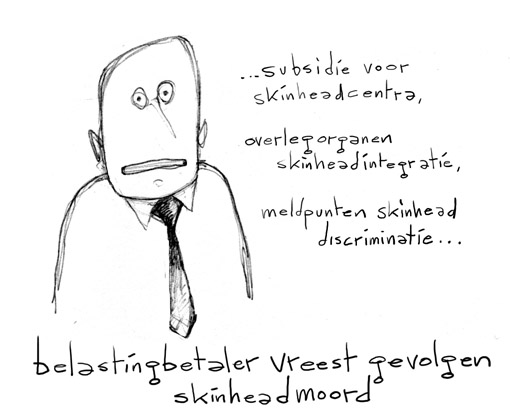 ...subsidie voor
skinheadcentra,
overlegorganen
skinheadintegratie,
meldpunten skinhead
discriminatie...
belastingbetaler vreest gevolgen
skinheadmoord